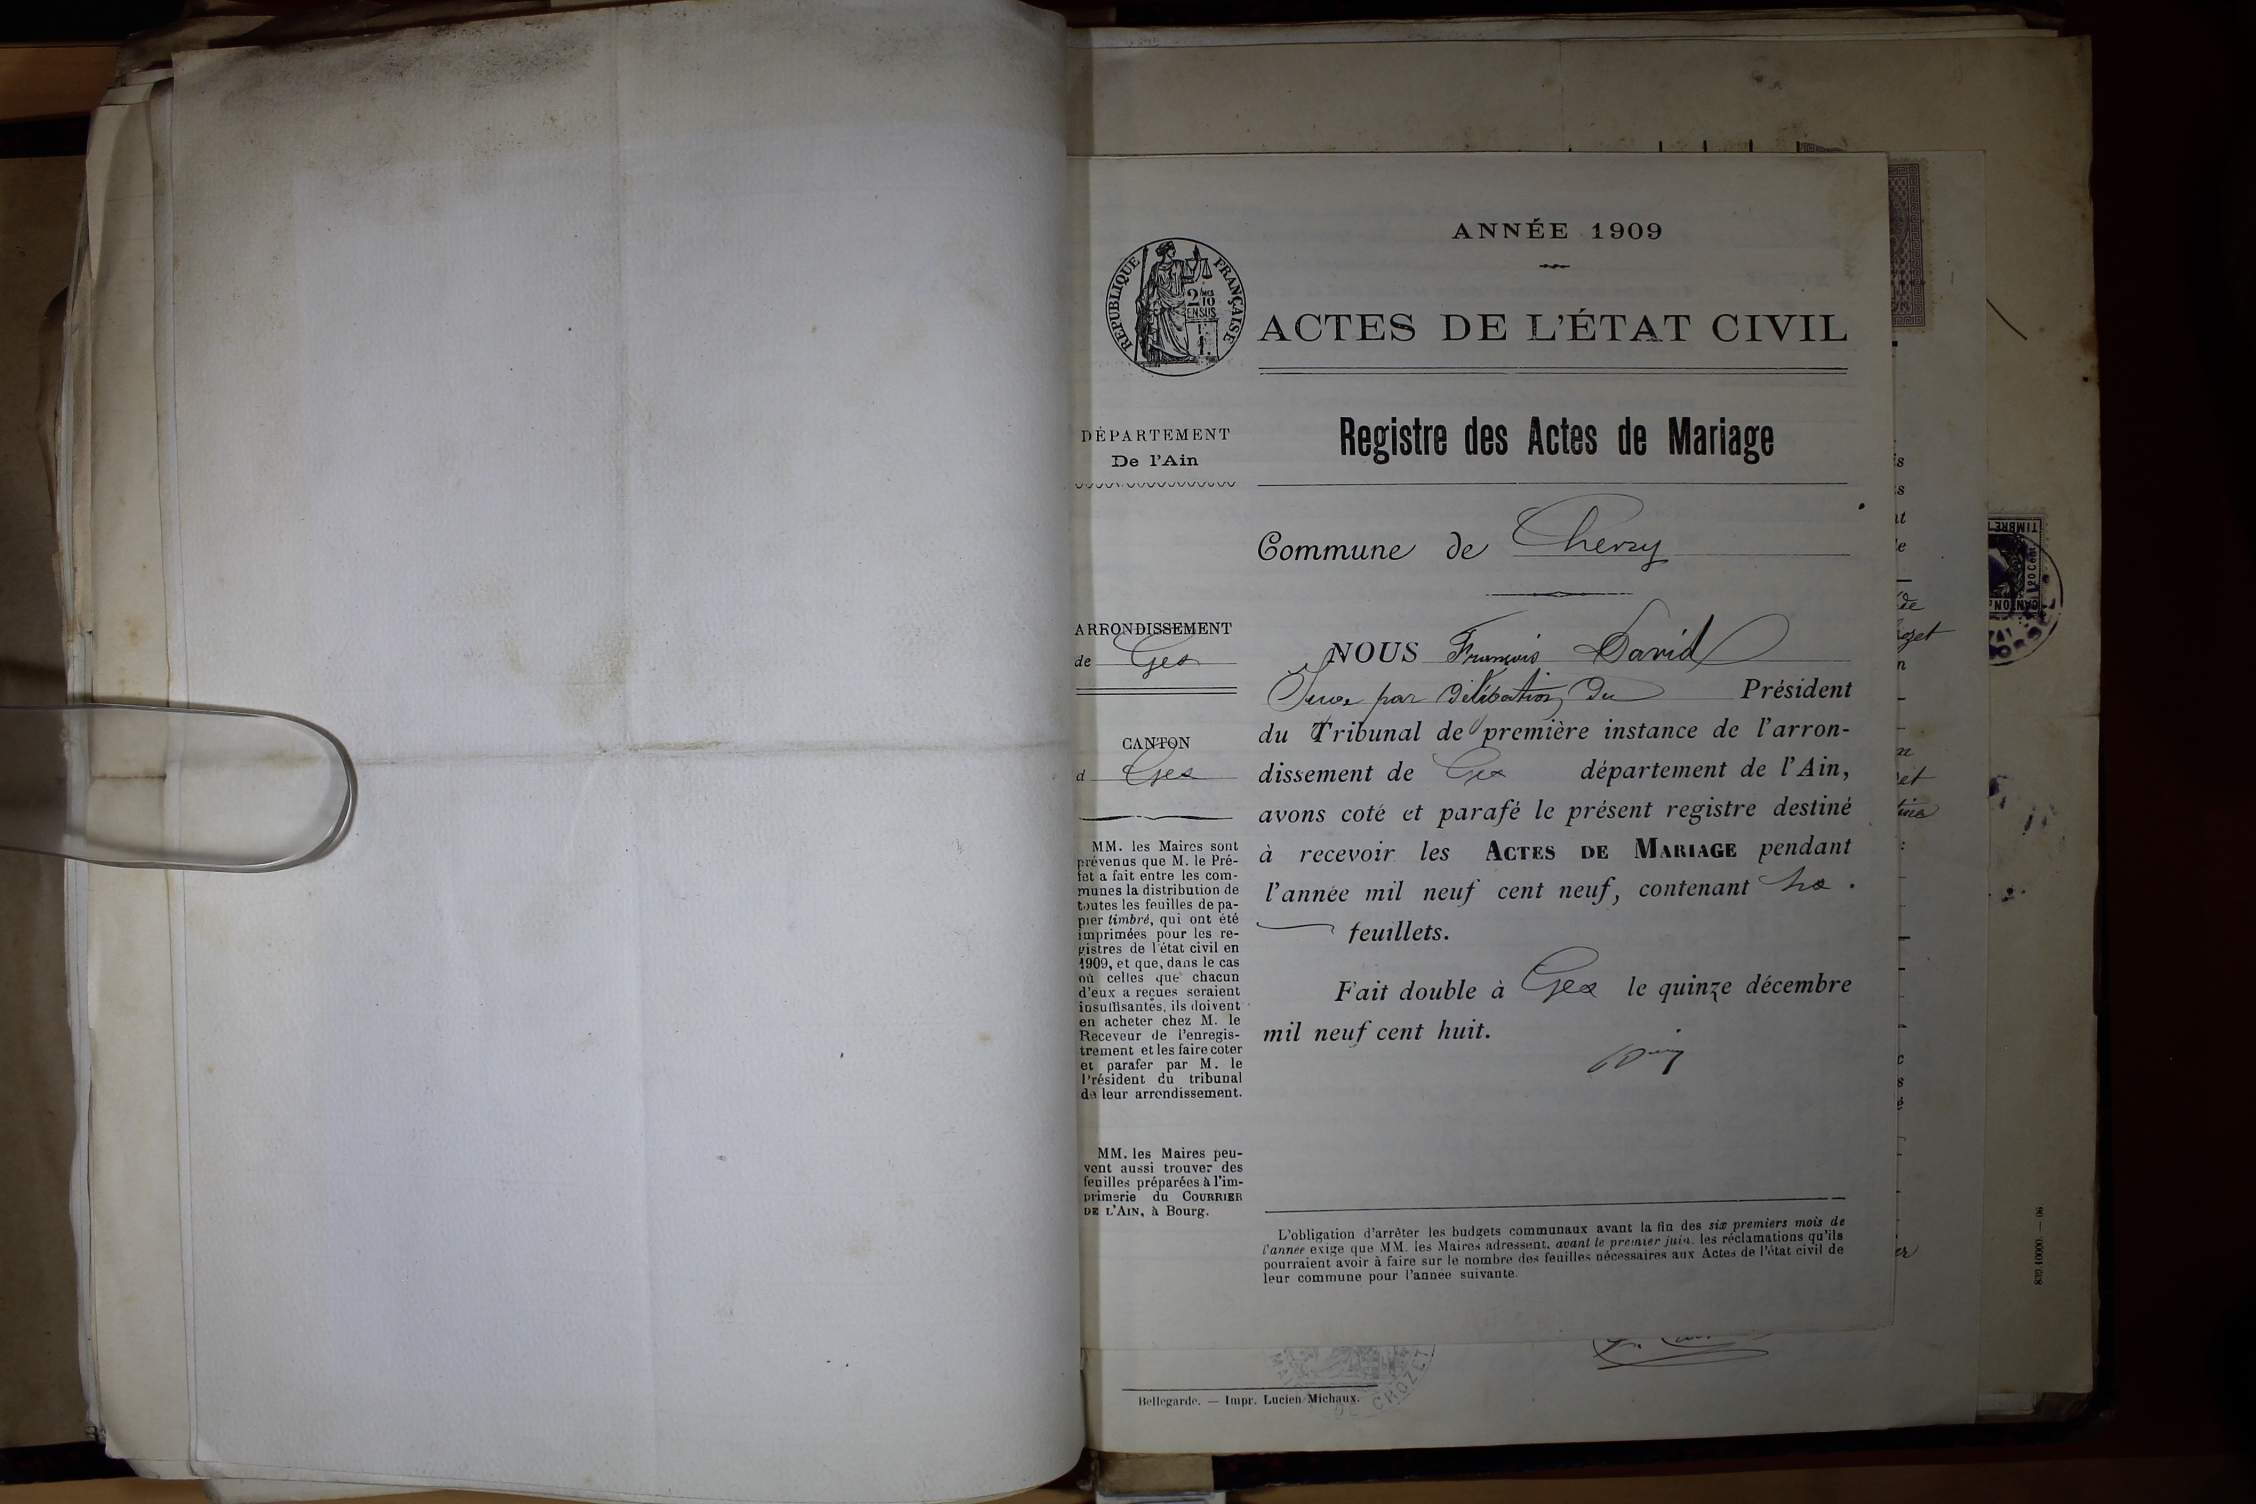 ANNÉE 1909
RÉPUBLIQUE FRANÇAISE
2/10
EN SUS
ACTES DE L'ÉTAT CIVIL
DÉPARTEMENT
De l'Ain
Registre des Actes de Mariage
Commune de
ARRONDISSEMENT
de Gex
NOUS François David
Juge par délégation du Président
du Tribunal de première instance de l'arron-
dissement de Gex département de l'Ain,
avons coté et parafé le présent registre destiné
à recevoir les ACTES DE MARIAGE pendant
l'année mil neuf cent neuf, contenant
feuillets.
Fait double à Gex le quinze décembre
mil neuf cent huit.
CANTON
d Gex
MM. les Maires sont
prévenus que M. le Pré-
fet a fait entre les com-
munes la distribution de
toutes les feuilles de pa-
pier timbré, qui ont été
imprimées pour les re-
gistres de l'état civil en
1909, et que, dans le cas
où celles que chacun
d'eux a reçues seraient
insuffisantes, ils doivent
en acheter chez M. le
Receveur de l'enregis-
trement et les faire coter
et parafer par M. le
Président du tribunal
de leur arrondissement.
MM. les Maires peu-
vent aussi trouver des
feuilles préparées à l'im-
primerie du COURRIER
DE L'AIN, à Bourg.
L'obligation d'arrêter les budgets communaux avant la fin des six premiers mois de
l'année exige que MM. les Maires adressent, avant le premier juin, les réclamations qu'ils
pourraient avoir à faire sur le nombre des feuilles nécessaires aux Actes de l'état civil de
leur commune pour l'année suivante.
Bellegarde. — Impr. Lucien Michaux.
DE CROZET
839.40000. — 06